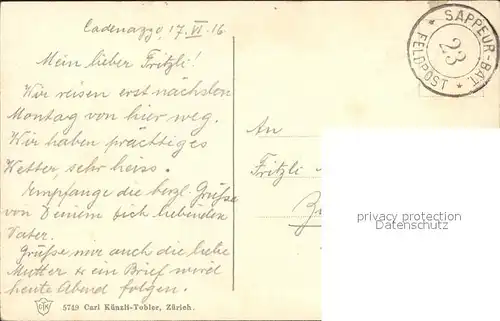 Cadenazzo, 17. VI. 16
Mein lieber Fritzli!
Wir reisen erst nächsten
Montag von hier weg.
Wir haben prächtiges
Wetter, sehr heiss.
Empfange die herzl. Grüsse
von Deinem Dich liebenden
Vater.
Grüsse mir auch die liebe
Mutter & ein Brief wird
heute Abend folgen.
5749 Carl Künzli-Tobler, Zürich.
* SAPPEUR-BAT. *
23
FELDPOST
An
Fritzli
privacy protection
Datenschutz